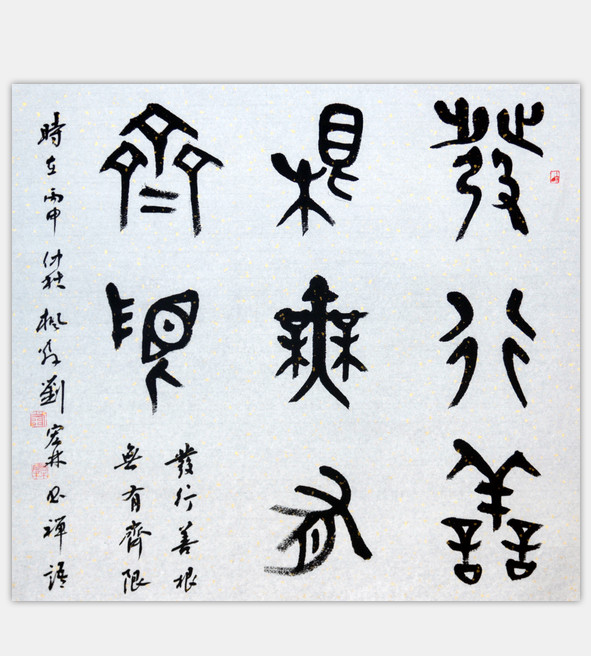 發行善
根無有
齊限
發行善根
無有齊限
時在丙申仲秋楓劉宏林書禪語